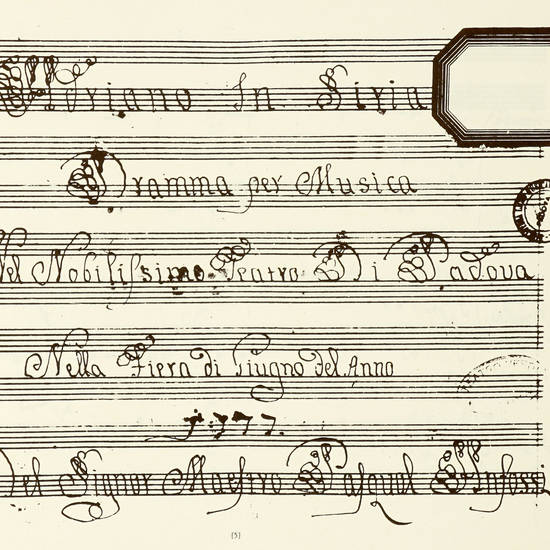 Adriano In Siria
Dramma per Musica
Nel Nobilissimo Teatro Di Padova
Nella Fiera di Giugno Del Anno
1777.
Del Signor Maestro Pasqual Anfossi
(5)